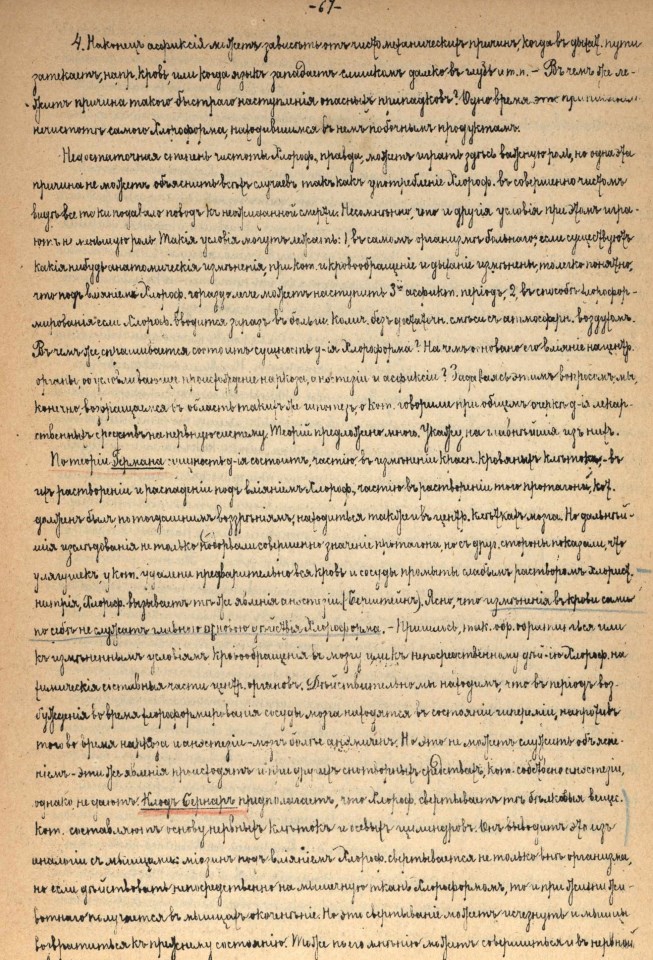 -67-
4. Наконецъ асфиксія можетъ зависѣть отъ чисто механическихъ причинъ, когда въ дыхат. пути
затекаетъ, напр. кровь или когда языкъ западаетъ слишкомъ далеко въ глубь и т.п. – Въ чемъ же ле-
житъ причина такого быстраго наступленія опасныхъ припадковъ? Одно время это приписывали
нечистотѣ самого Хлороформа, находившимся въ немъ побочнымъ продуктамъ.
Недостаточная степень чистоты Хлороф., правда, можетъ играть здѣсь важную роль, но одна эта
причина не можетъ объяснить всѣхъ случаевъ такъ какъ употребленіе Хлороф. въ совершенно чистомъ
видѣ все таки подавало поводъ къ неожиданной смерти. Несомнѣнно, что и другія условія при этомъ игра-
ютъ не меньшую роль. Такія условія могутъ лежать: 1, въ самомъ организмѣ больнаго; если существуютъ
какія нибудь анатомическія измѣненія, при кот. и кровообращеніе и дыханіе измѣнены, то легко понятно,
что подъ вліяніемъ Хлороф. гораздо легче можетъ наступить 3й асфикт. періодъ, 2, въ способѣ хлорофор-
мированія: если Хлороф. вводится заразъ въ больш. колич. безъ достаточн. смѣси съ атмосферн. воздухомъ.
Въ чемъ же, спрашивается состоитъ сущность д-ія Хлороформа? На чемъ основано его вліяніе на центр.
органы, обусловливающее происхожденіе наркоза, анэстезіи и асфиксіи? Задаваясь этимъ вопросомъ, мы,
конечно, возвращаемся въ область такихъ же гипотезъ, о кот. говорили при общемъ очеркѣ д-ія лекар-
ственныхъ средствъ на нервную систему. Теорій предложено много. Укажу на главнѣйшія изъ нихъ.
По теоріи Германа: сущность д-ія состоитъ, частію въ измѣненіи красн. кровяныхъ клѣтокъ, въ
ихъ раствореніи и распаденіи подъ вліяніемъ Хлороф., частію въ раствореніи того протагона, кот.
долженъ былъ по тогдашнимъ воззрѣніямъ, находиться также и въ центр. клѣткахъ мозга. Но дальнѣй-
шія изслѣдованія не только подорвали совершенно значеніе протагона, но съ друг. стороны показали, что
у лягушекъ, у кот. удалени предварительно вся кровь и сосуды промыты слабымъ растворомъ хлорист.
натрія, Хлороф. вызываетъ тѣ же явленія анэстезіи (Бернштейнъ). Ясно, что измѣненія въ крови сами
по себѣ не служатъ главною основою дѣйствія Хлороформа. – Пришлось, так. обр. обратиться или
къ измѣненнымъ условіямъ кровообращенія въ мозгу или къ непосредственному дѣй-ію Хлороф. на
химическія составныя части центр. органовъ. Дѣйствительно мы находимъ, что въ періодѣ воз-
бужденія во время хлороформированія сосуды мозга находятся въ состояніи гипереміи, напротивъ
того во время наркоза и анэстезіи – мозгъ болѣе анэмиченъ. Но это не можетъ служить объясне-
ніемъ – эти же явленія происходятъ и при другихъ снотворныхъ средствахъ, кот. собственно анэстезіи,
однако, не даютъ. Клодъ Бернаръ предполагаетъ, что Хлороф. свертываетъ тѣ бѣлковыя вещес.
кот. составляютъ основу нервныхъ клѣтокъ и осевыхъ цилиндровъ. Онъ выводитъ это изъ
аналогіи съ мышцами: міозинъ подъ вліяніемъ Хлороф. свертывается не только внѣ организма,
но если дѣйствовать непосредственно на мышечную ткань Хлороформомъ, то и при жизни жи-
вотнаго получается въ мышцахъ окоченѣніе. Но это свертываніе можетъ исчезнуть и мышцы
возвратиться къ прежнему состоянію. Тоже по его мнѣнію можетъ совершиться и въ нервной